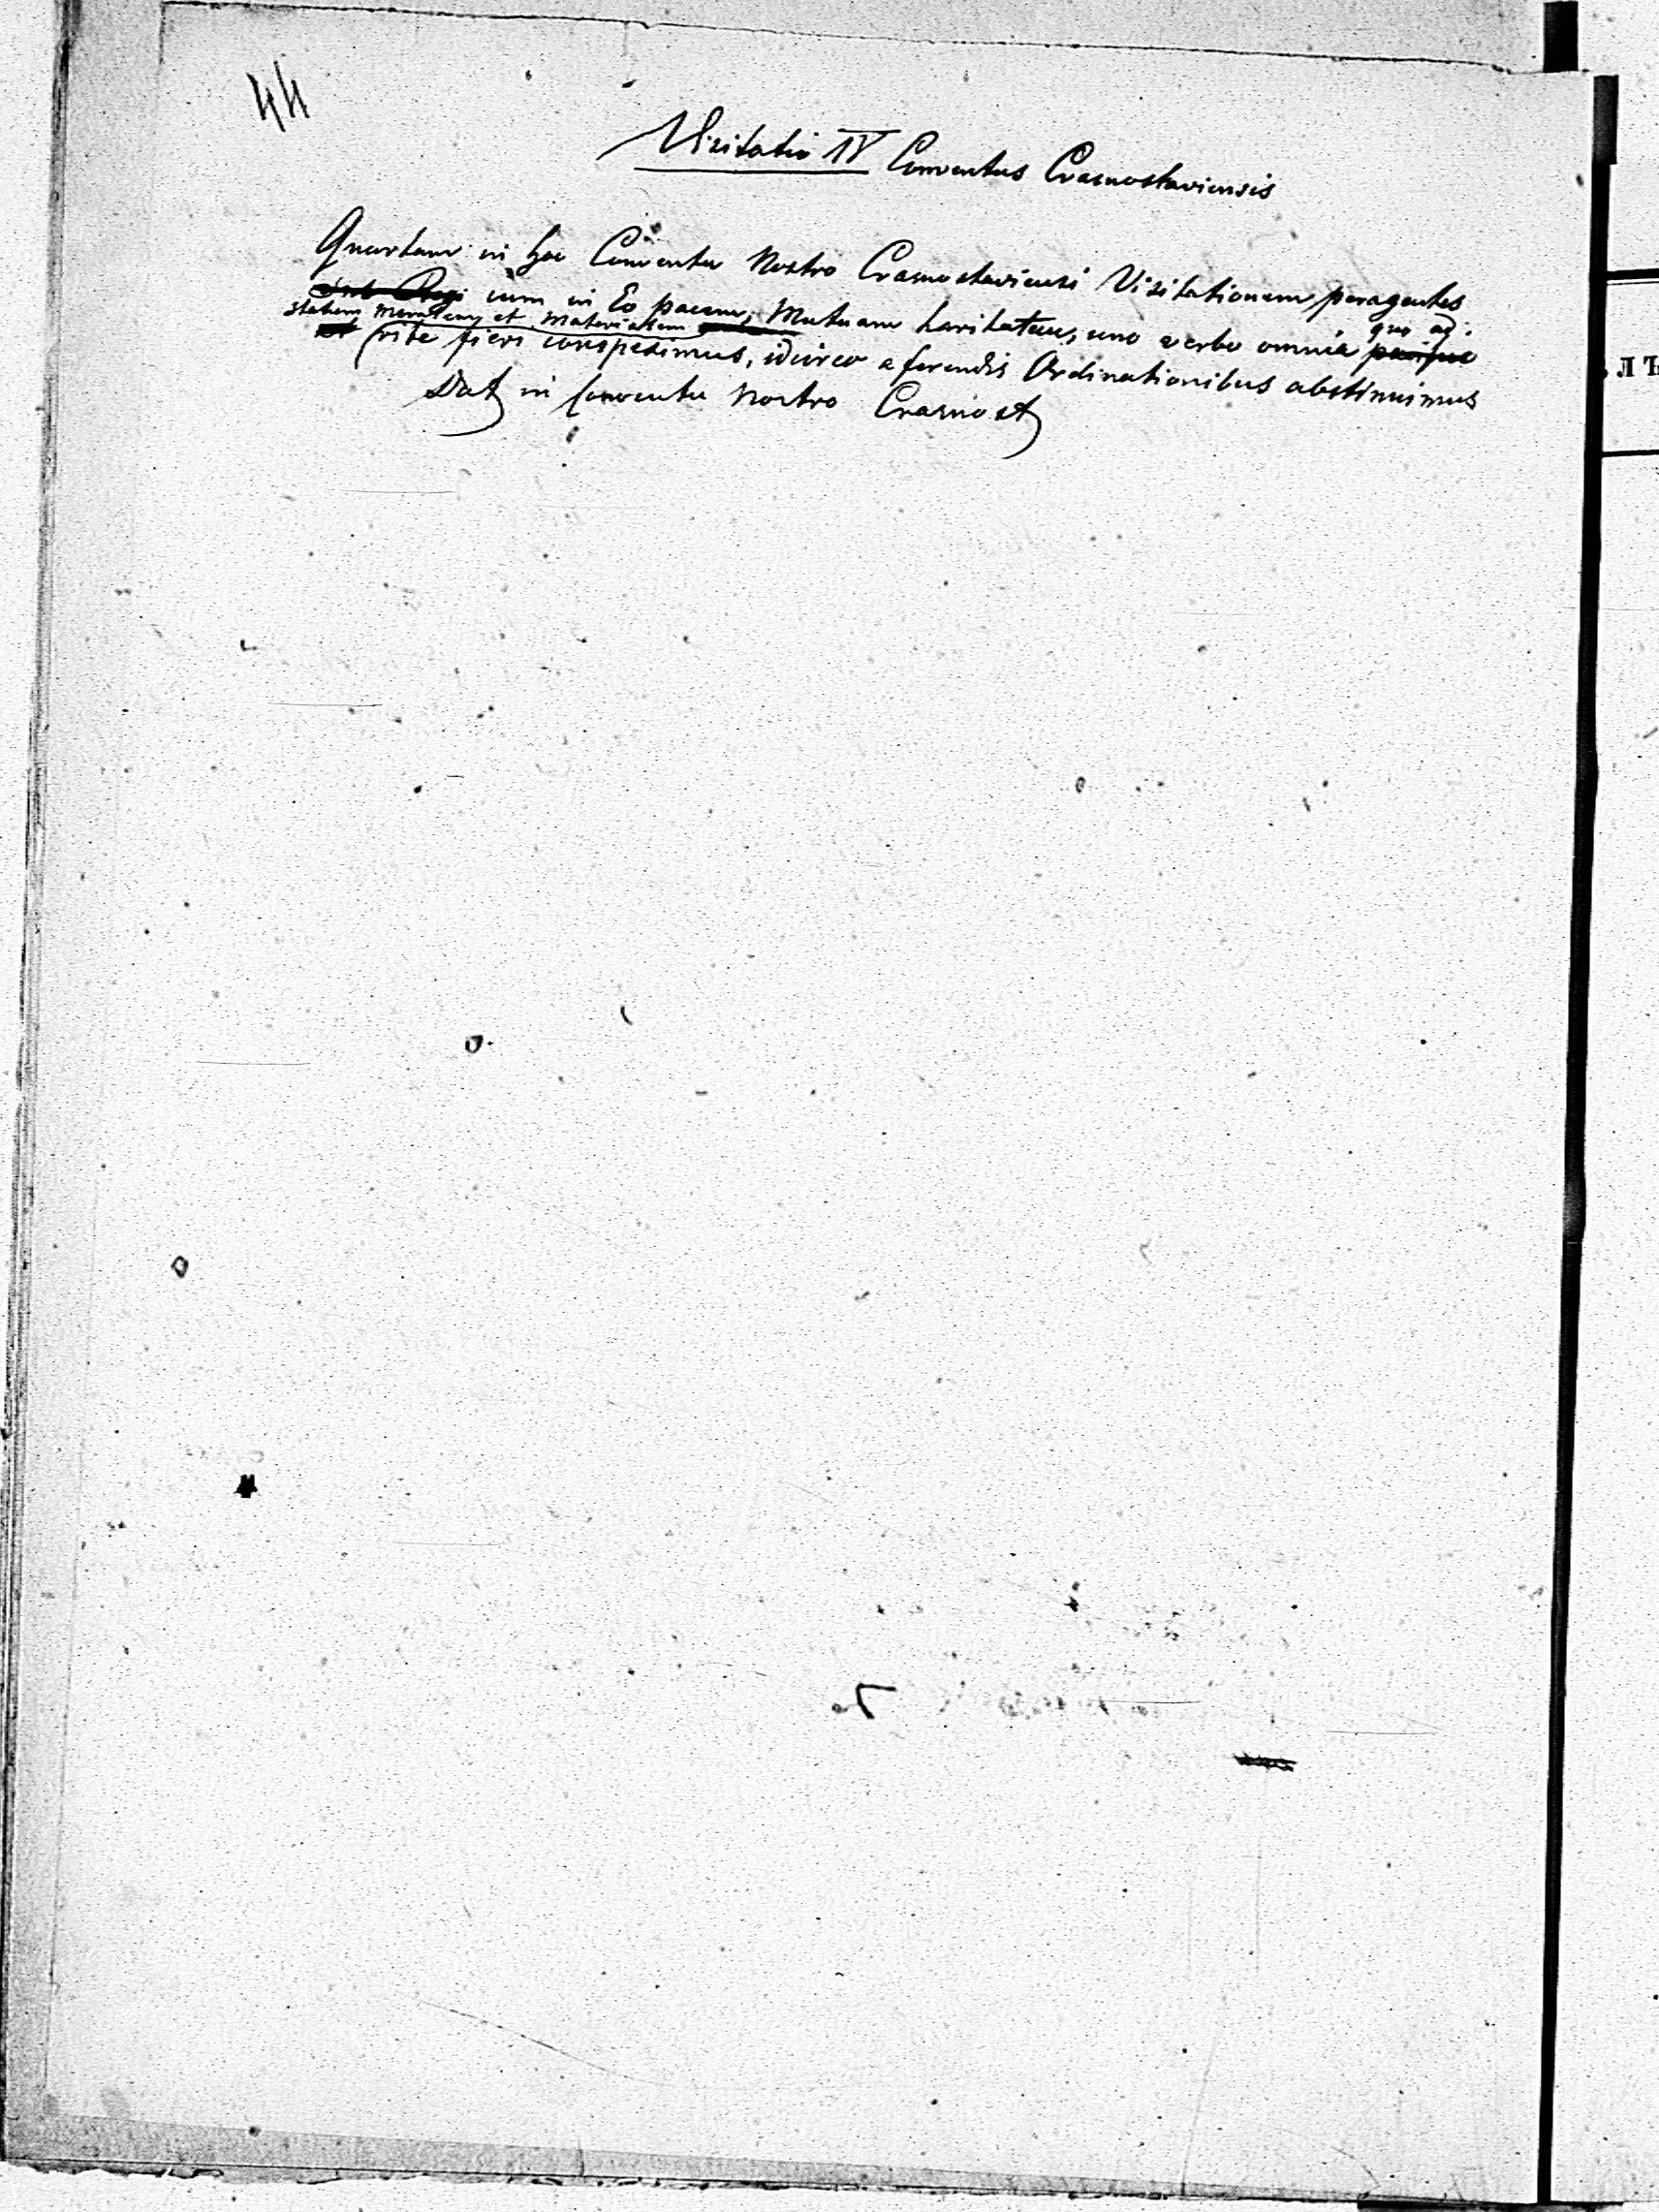 44
Visitatio IV Conventus Crasnostaviensis
Quartam in hoc Conventu Nostro Crasnostaviensi Visitationem peragentes
cum in Eo pacem, Mutuam Caritatem, uno verbo omnia quo ad
statum et Materialem
rite fieri conspeximus, idcirco a ferendis Ordinationibus abstinuimus
Dat in Conventu Nostro Crasnost
ЛЪ